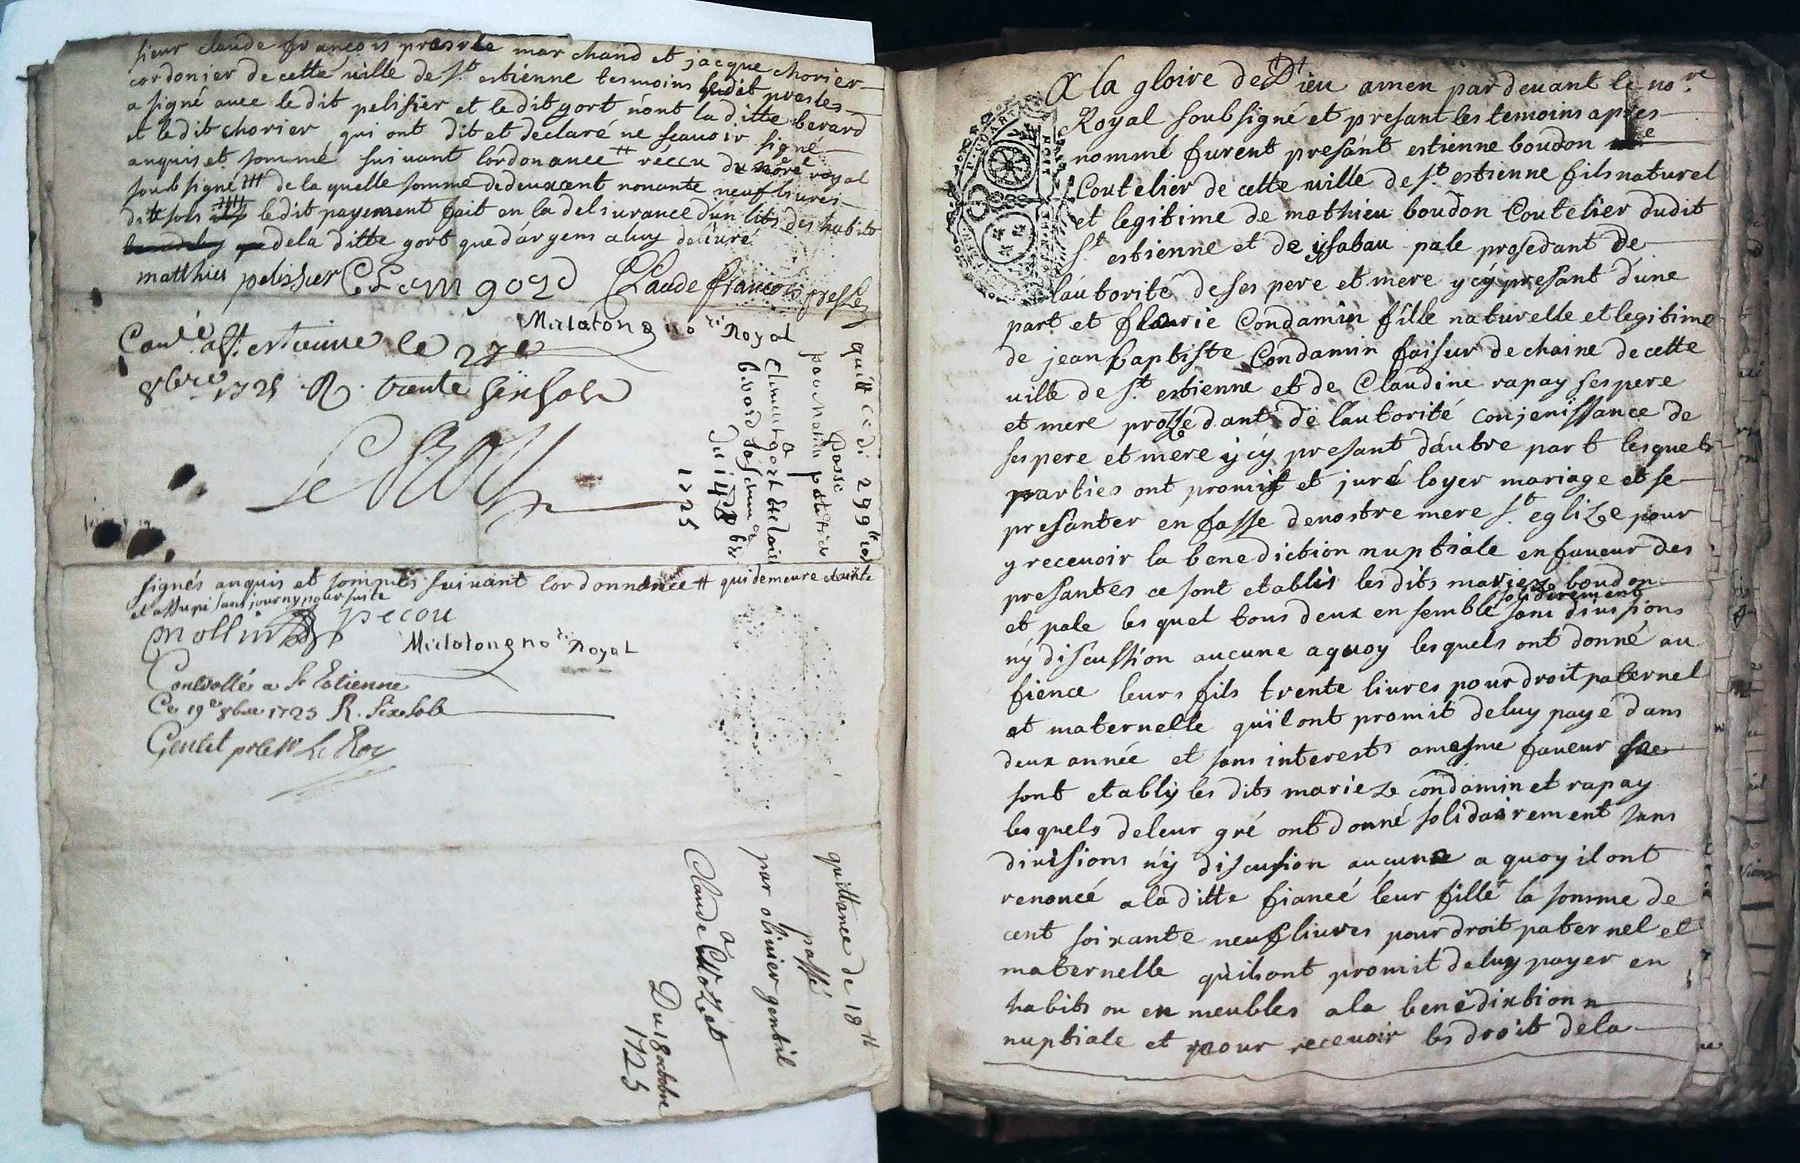 sieur claude françois presrle marchand et jacque chorier
cordonier de cette ville de St estienne tesmoins ledit presles
a signé avec le dit pelisier et le dit gort non la ditte berard
et ledit chorier qui ont dit et declaré ne scavoir signé
anquis et sommé suivant lordonance # réccu du nore royal
soubsigné #1 de la quelle somme de deux cent nonante neuf livres
dix sols ledit payement fait en la delivrance d'un lits des habits
de la ditte gort que dargens a luy delivré
matthieu pelissier CLem gord Claude françois presle
Mirlatong nore Royal
Conlé a St estienne le 27e
8bre 1725 R trente six sols
Le Roy
quitt ce di 299lt 10s
passé
par mathieu pelissier
a
clemt gort et claudi
berard sa femme
du
1725
signés anquis et sommés suivant lordonnance # qui demeure etainte
et assupi sans journy poursuite
Mollin pecou
Mirlatong nore Royal
Controllé a St Estienne
Ce 19e 8bre 1725 R. six sols
Gentil Le Roy
quittance de 18lt
passé
par olivier gentil
a
Claude Crozet
Du 18 octobre
1725
A la gloire de Dieu amen par devant le nore
Royal soubsigné et presant les temoins apres
nommé furent presant estienne boudon
Coutelier de cette ville de St estienne fils naturel
et legitime de mathieu boudon Coutelier dudit
St estienne et de ysabau pale prosedant de
lautorité de ses pere et mere ycy presant d'une
part et fleurie Condamin fille naturelle et legitime
de jean baptiste Condamin faisur de chaine de cette
ville de St estienne et de Claudine rapay ses pere
et mere prossedant de lautorité conjenissance de
ses pere et mere ycy presant dautre part lesquels
parties ont promis et juré loyer mariage et se
presanter en fasse de nostre mere St eglize pour
y recevoir la benediction nuptiale en faveur des
presantes ce sont etablis les dits mariez boudon
et pale les quel tous deux en semble solidérement sans divisions
ny discussion aucune a quoy les quels ont donné au
fience leurs fils trente livres pour droit paternel
et maternelle qu'il ont promit de luy payé dans
deux année et sans interests a mesme faveur se
sont etably les dits mariez condamin et rapay
les quels de leur gré ont donné solidairement sans
divisions ny discusion aucune a quoy il ont
renoncé a la ditte fiancé leur fille la somme de
cent soixante neuf livres pour droit paternel et
maternelle qu'ils ont promit de luy payer en
habits ou en meubles a la benediction
nuptiale et pour recevoir les droit de la